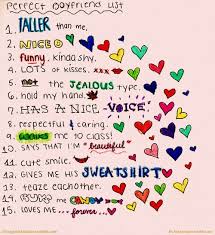 perfect boyfriend list
1. TALLER than me.
2. NICE
3. funny, kinda shy.
4. LOTS of kisses.
5. not the JEALOUS type.
6. hold my hand.
7. HAS A NICE VOICE!
8. respectful & caring.
9. me to class!
10. SAYS THAT I'M "beautiful"
11. cute smile.
12. GIVES ME HIS SWEATSHIRT
13. teaze eachother.
14. me
15. loves me ...forever...